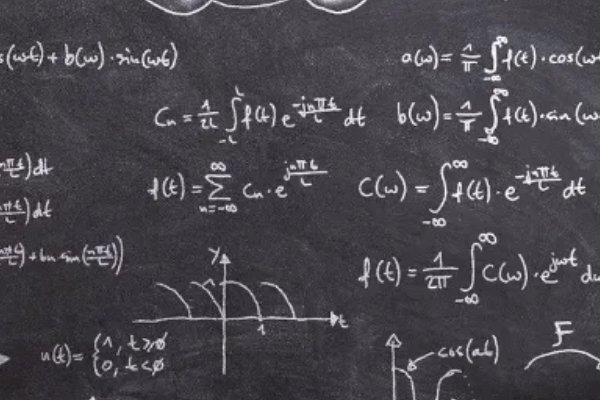 s(ωt) + b(ω) · sin(ωt)
a(ω) = 1/π ∫_{-∞}^{∞} f(t) · cos(ω
Cₙ = 1/2L ∫_{-L}^{L} f(t) e^{-jnπt/L} dt
b(ω) = 1/π ∫_{-∞}^{∞} f(t) · sin(ω
nπt/L) dt
f(t) = ∑_{n=-∞}^{∞} Cₙ · e^{jnπt/L}
C(ω) = ∫_{-∞}^{∞} f(t) · e^{-jnπt/L} dt
nπt/L) dt
nπt/L) + bn sin(nπt/L))
f(t) = 1/2π ∫_{-∞}^{∞} C(ω) · e^{jωt} dω
y
1
t
u(t) = { 1, t ≥ 0
0, t < 0
cos(at)
F